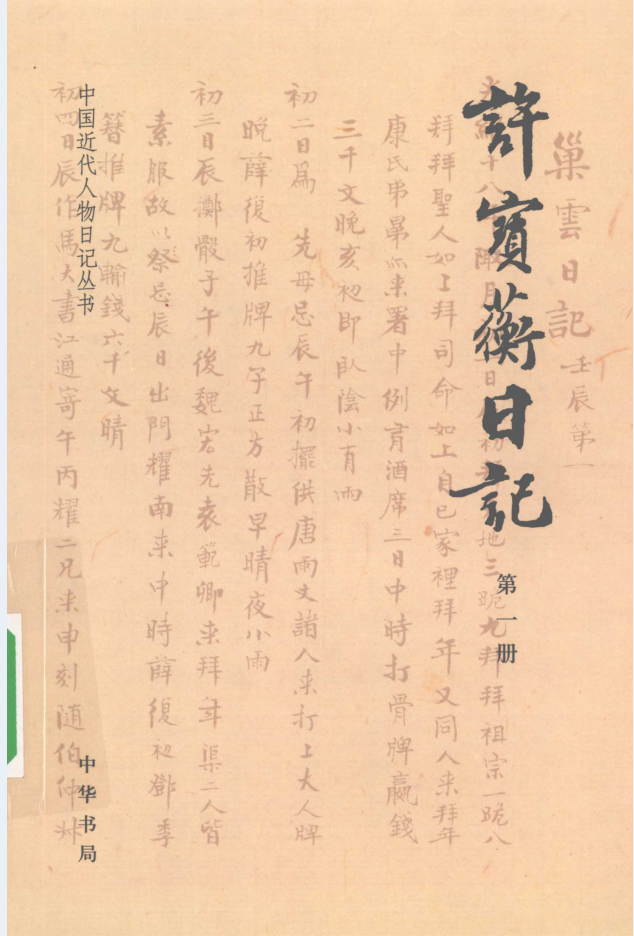 許寳蘅日記
第一册
中国近代人物日记丛书
中华书局
巢雲日記 壬辰第一
十八 月 日 初 三跪九拜拜祖宗一跪八
拜拜聖人如上拜司命如上自已家裡拜年又同人来拜年
康民弟 来署中例有酒席三日中時打骨牌贏錢
三千文晚亥初即臥陰小有雨
初二日爲 先母忌辰午初擺供唐雨文諸人来打上大人牌
晚薛復初推牌九子正方散早晴夜小雨
初三日辰擲骰子午後魏宏先袁範卿来拜年渠二人皆
素服故 祭忌辰日出門耀南来中時薛復初鄧季
簪推牌九輸錢六千文晴
初四日辰作馬大書江通寄午丙耀二兄来申刻随伯仲